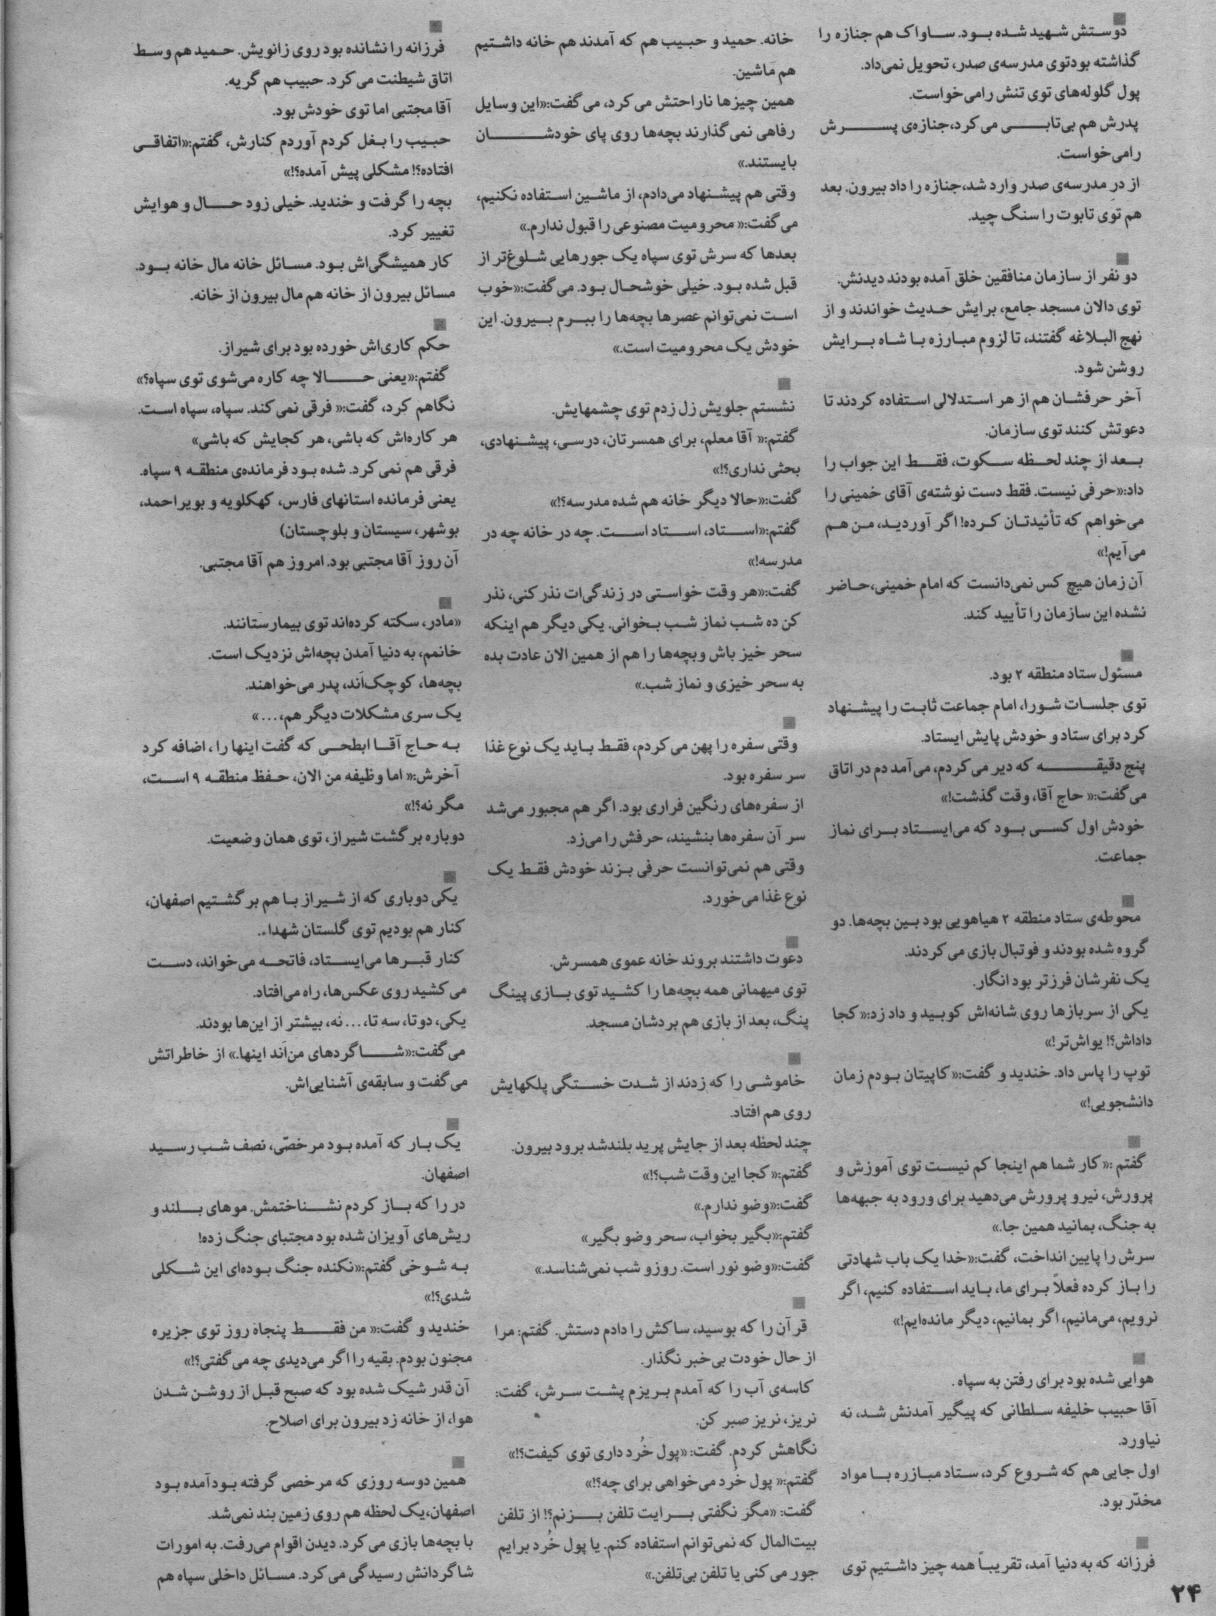 دوستش شهید شده بود. ساواک هم جنازه را
گذاشته بودتوی مدرسه‌ی صدر، تحویل نمی‌داد.
پول گلوله‌های توی تنش رامی‌خواست.
پدرش هم بی‌تابی می‌کرد،جنازه‌ی پسرش
رامی‌خواست.
از در مدرسه‌ی صدر وارد شد،جنازه را داد بیرون. بعد
هم توی تابوت را سنگ چید.
دو نفر از سازمان منافقین خلق آمده بودند دیدنش.
توی دالان مسجد جامع، برایش حدیث خواندند و از
نهج البلاغه گفتند، تا لزوم مبارزه با شاه برایش
روشن شود.
آخر حرفشان هم از هر استدلالی استفاده کردند تا
دعوتش کنند توی سازمان.
بعد از چند لحظه سکوت، فقط این جواب را
داد:«حرفی نیست. فقط دست نوشته‌ی آقای خمینی را
می‌خواهم که تأئیدتان کرده! اگر آوردید، من هم
می‌آیم!»
آن زمان هیچ کس نمی‌دانست که امام خمینی،حاضر
نشده این سازمان را تأیید کند.
مسئول ستاد منطقه ۲ بود.
توی جلسات شورا، امام جماعت ثابت را پیشنهاد
کرد برای ستاد و خودش پایش ایستاد.
پنج دقیقه که دیر می‌کردم، می‌آمد دم در اتاق
می‌گفت:« حاج آقا، وقت گذشت!»
خودش اول کسی بود که می‌ایستاد برای نماز
جماعت.
محوطه‌ی ستاد منطقه ۲ هیاهویی بود بین بچه‌ها. دو
گروه شده بودند و فوتبال بازی می‌کردند.
یک نفرشان فرزتر بود انگار.
یکی از سربازها روی شانه‌اش کوبید و داد زد:« کجا
داداش؟! یواش‌تر!»
توپ را پاس داد. خندید و گفت:« کاپیتان بودم زمان
دانشجویی!»
گفتم :« کار شما هم اینجا کم نیست توی آموزش و
پرورش، نیرو پرورش می‌دهید برای ورود به جبهه‌ها
به جنگ، بمانید همین جا.»
سرش را پایین انداخت، گفت:«خدا یک باب شهادتی
را باز کرده فعلاً برای ما، باید استفاده کنیم، اگر
نرویم، می‌مانیم، اگر بمانیم، دیگر مانده‌ایم!»
هوایی شده بود برای رفتن به سپاه .
آقا حبیب خلیفه سلطانی که پیگیر آمدنش شد، نه
نیاورد.
اول جایی هم که شروع کرد، ستاد مبارزه با مواد
مخدّر بود.
فرزانه که به دنیا آمد، تقریباً همه چیز داشتیم توی
خانه. حمید و حبیب هم که آمدند هم خانه داشتیم
هم ماشین.
همین چیزها ناراحتش می‌کرد، می‌گفت:«این وسایل
رفاهی نمی‌گذارند بچه‌ها روی پای خودشان
بایستند.»
وقتی هم پیشنهاد می‌دادم، از ماشین استفاده نکنیم،
می‌گفت:« محرومیت مصنوعی را قبول ندارم.»
بعدها که سرش توی سپاه یک جورهایی شلوغ‌تر از
قبل شده بود. خیلی خوشحال بود. می‌گفت:«خوب
است نمی‌توانم عصرها بچه‌ها را ببرم بیرون. این
خودش یک محرومیت است.»
نشستم جلویش زل زدم توی چشمهایش.
گفتم:« آقا معلم، برای همسرتان، درسی، پیشنهادی،
بحثی نداری؟!»
گفت:«حالا دیگر خانه هم شده مدرسه؟!»
گفتم:«استاد، استاد است. چه در خانه چه در
مدرسه!»
گفت:«هر وقت خواستی در زندگی‌ات نذر کنی، نذر
کن ده شب نماز شب بخوانی. یکی دیگر هم اینکه
سحر خیز باش وبچه‌ها را هم از همین الان عادت بده
به سحر خیزی و نماز شب.»
وقتی سفره را پهن می‌کردم، فقط باید یک نوع غذا
سر سفره بود.
از سفره‌های رنگین فراری بود. اگر هم مجبور می‌شد
سر آن سفره‌ها بنشیند، حرفش را می‌زد.
وقتی هم نمی‌توانست حرفی بزند خودش فقط یک
نوع غذا می‌خورد.
دعوت داشتند بروند خانه عموی همسرش.
توی میهمانی همه بچه‌ها را کشید توی بازی پینگ
پنگ، بعد از بازی هم بردشان مسجد.
خاموشی را که زدند از شدت خستگی پلکهایش
روی هم افتاد.
چند لحظه بعد از جایش پرید بلندشد برود بیرون.
گفتم:« کجا این وقت شب؟!»
گفت:«وضو ندارم.»
گفتم:«بگیر بخواب، سحر وضو بگیر»
گفت:«وضو نور است. روزو شب نمی‌شناسد.»
قرآن را که بوسید، ساکش را دادم دستش. گفتم: مرا
از حال خودت بی‌خبر نگذار.
کاسه‌ی آب را که آمدم بریزم پشت سرش، گفت:
نریز، نریز صبر کن.
نگاهش کردم. گفت: «پول خُرد داری توی کیفت؟!»
گفتم:« پول خُرد می‌خواهی برای چه؟!»
گفت: «مگر نگفتی برایت تلفن بزنم؟! از تلفن
بیت‌المال که نمی‌توانم استفاده کنم. یا پول خُرد برایم
جور می‌کنی یا تلفن بی‌تلفن.»
فرزانه را نشانده بود روی زانویش. حمید هم وسط
اتاق شیطنت می‌کرد. حبیب هم گریه.
آقا مجتبی اما توی خودش بود.
حبیب را بغل کردم آوردم کنارش، گفتم:«اتفاقی
افتاده؟! مشکلی پیش آمده؟!»
بچه را گرفت و خندید. خیلی زود حال و هوایش
تغییر کرد.
کار همیشگی‌اش بود. مسائل خانه مال خانه بود.
مسائل بیرون از خانه هم مال بیرون از خانه.
حکم کاری‌اش خورده بود برای شیراز.
گفتم:«یعنی حالا چه کاره می‌شوی توی سپاه؟»
نگاهم کرد، گفت:« فرقی نمی‌کند. سپاه، سپاه است.
هر کاره‌اش که باشی، هر کجایش که باشی»
فرقی هم نمی‌کرد. شده بود فرمانده‌ی منطقه ۹ سپاه.
یعنی فرمانده استانهای فارس، کهکلویه و بویراحمد،
بوشهر، سیستان و بلوچستان)
آن روز آقا مجتبی بود. امروز هم آقا مجتبی.
«مادر، سکته کرده‌اند توی بیمارستانند.
خانمم، به دنیا آمدن بچه‌اش نزدیک است.
بچه‌ها، کوچک‌اند، پدر می‌خواهند.
یک سری مشکلات دیگر هم،... »
به حاج آقا ابطحی که گفت اینها را، اضافه کرد
آخرش:« اما وظیفه من الان، حفظ منطقه ۹ است،
مگر نه؟!»
دوباره برگشت شیراز، توی همان وضعیت.
یکی دوباری که از شیراز با هم برگشتیم اصفهان،
کنار هم بودیم توی گلستان شهداء.
کنار قبرها می‌ایستاد، فاتحه می‌خواند، دست
می‌کشید روی عکس‌ها، راه می‌افتاد.
یکی، دوتا، سه تا،... نه، بیشتر از این‌ها بودند.
می‌گفت:«شاگردهای من‌اند اینها.» از خاطراتش
می‌گفت و سابقه‌ی آشنایی‌اش.
یک بار که آمده بود مرخصّی، نصف شب رسید
اصفهان.
در را که باز کردم نشناختمش. موهای بلند و
ریش‌های آویزان شده بود مجتبای جنگ زده!
به شوخی گفتم:«نکنده جنگ بوده‌ای این شکلی
شدی؟!»
خندید و گفت:« من فقط پنجاه روز توی جزیره
مجنون بودم. بقیه را اگر می‌دیدی چه می‌گفتی؟!»
آن قدر شیک شده بود که صبح قبل از روشن شدن
هوا، از خانه زد بیرون برای اصلاح.
همین دوسه روزی که مرخصی گرفته بودآمده بود
اصفهان،یک لحظه هم روی زمین بند نمی‌شد.
با بچه‌ها بازی می‌کرد. دیدن اقوام می‌رفت. به امورات
شاگردانش رسیدگی می‌کرد. مسائل داخلی سپاه هم
۲۴